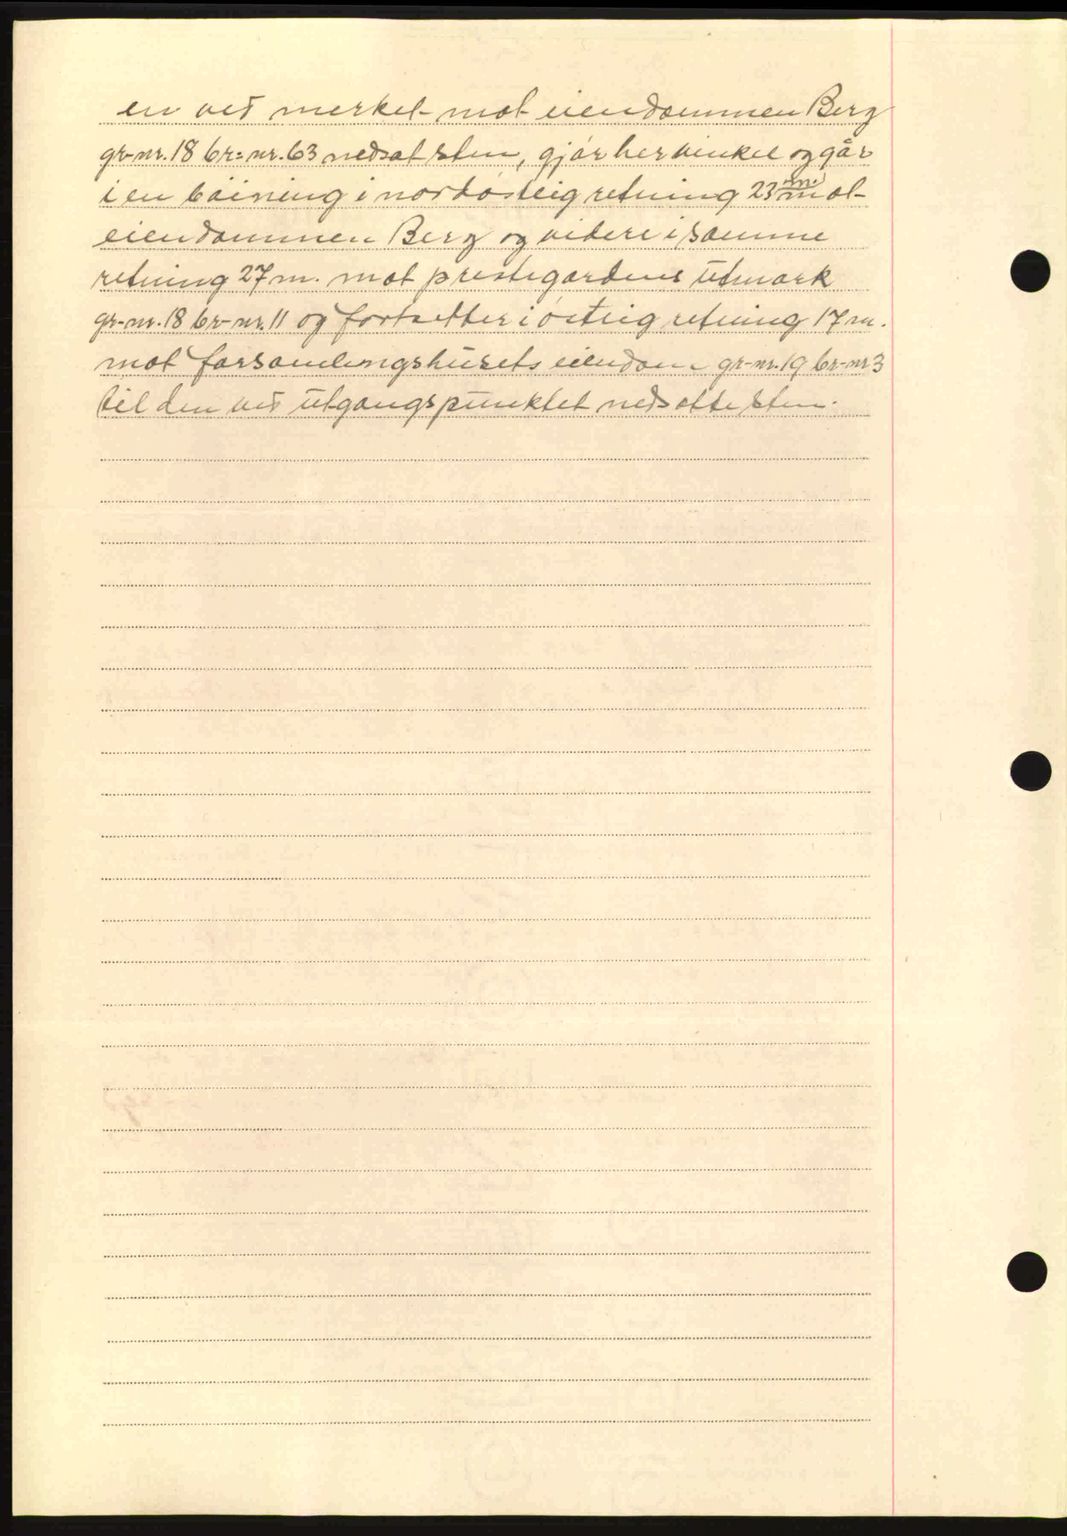 en ved merket mot eiendommen Berg
gr-nr. 18 br-nr. 63 nedsat sten, gjør her vinkel og går
i en bøining i nordøstlig retning 23 m. mot
eiendommen Berg og videre i samme
retning 27 m. mot prestegardens utmark
gr-nr. 18 br-nr. 11 og fortsetter i østlig retning 17 m.
mot forsamlingshusets eiendom gr-nr. 19 br-nr 3
til den ved utgangspunktet nedsatte sten.